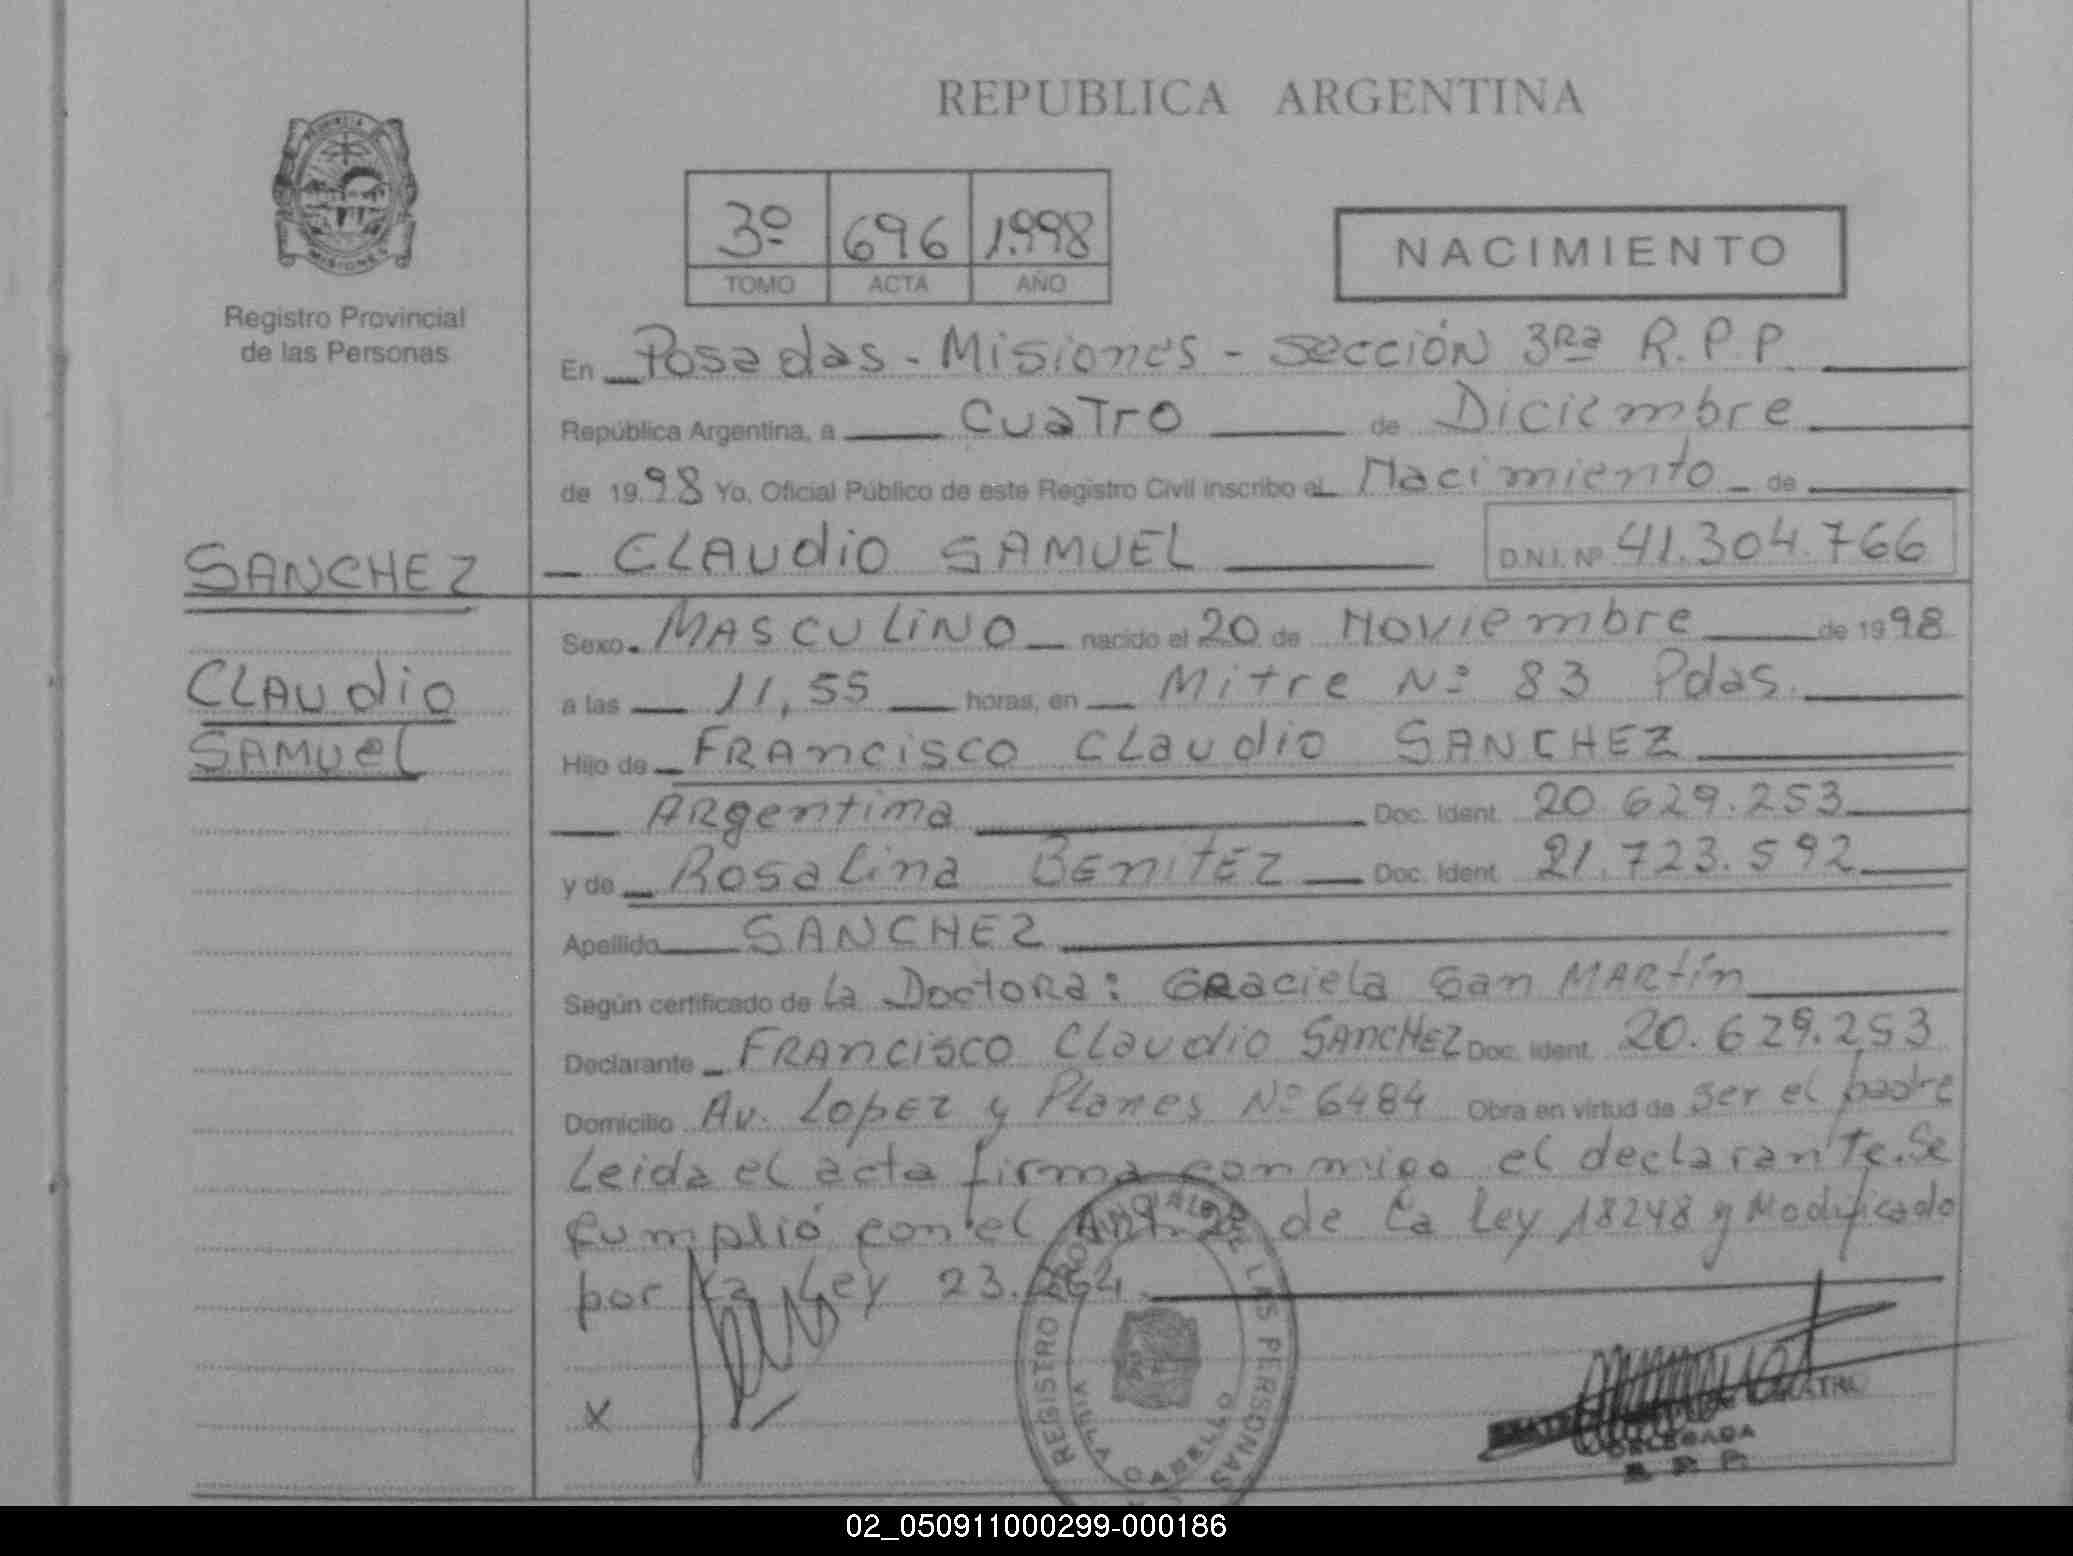 REPUBLICA ARGENTINA
PROVINCIA DE
MISIONES
Registro Provincial
de las Personas
3º 696 1.998
TOMO ACTA AÑO
NACIMIENTO
En Posadas - Misiones - Sección 3Ra R.P.P.
República Argentina, a Cuatro de Diciembre
de 1998 Yo, Oficial Público de este Registro Civil inscribo el Nacimiento de
SANCHEZ
CLAUdiO SAMUEL D.N.I. Nº 41.304.766
Sexo MASCULINO nacido el 20 de Noviembre de 1998
CLAUdio
SAMUEL
a las 11,55 horas, en Mitre Nº 83 Pdas.
Hijo de FRANCISCO CLaudio SANCHEZ
ARgentina Doc. Ident. 20.629.253
y de Rosalina BENITEZ Doc. Ident. 21.723.592
Apellido SANCHEZ
Según certificado de la Doctora: GRaciela San MARtín
Declarante FRANCISCO Claudio SANCHEZ Doc. Ident. 20.629.253
Domicilio Av. Lopez y Planes Nº 6484 Obra en virtud de ser el padre
Leida el acta firma conmigo el declarante. Se
cumplió con el de la Ley 18248 y Modificado
por la Ley 23.264
REGISTRO PROVINCIAL DE LAS PERSONAS
VILLA CABELLO
DELEGADA
R.P.P.
02_050911000299-000186